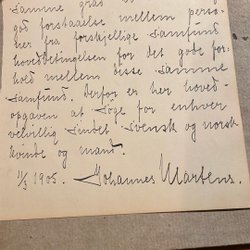 samme grad
god forstaaelse mellem perso-
ner fra forskjellige samfund
hovedbetingelsen for det gode for-
hold mellem disse samme
samfund. Derfor er her hoved-
opgaven at søge for enhver
velvillig sindet svensk og norsk
kvinde og mand.
11/3 1905. Johannes Martens.